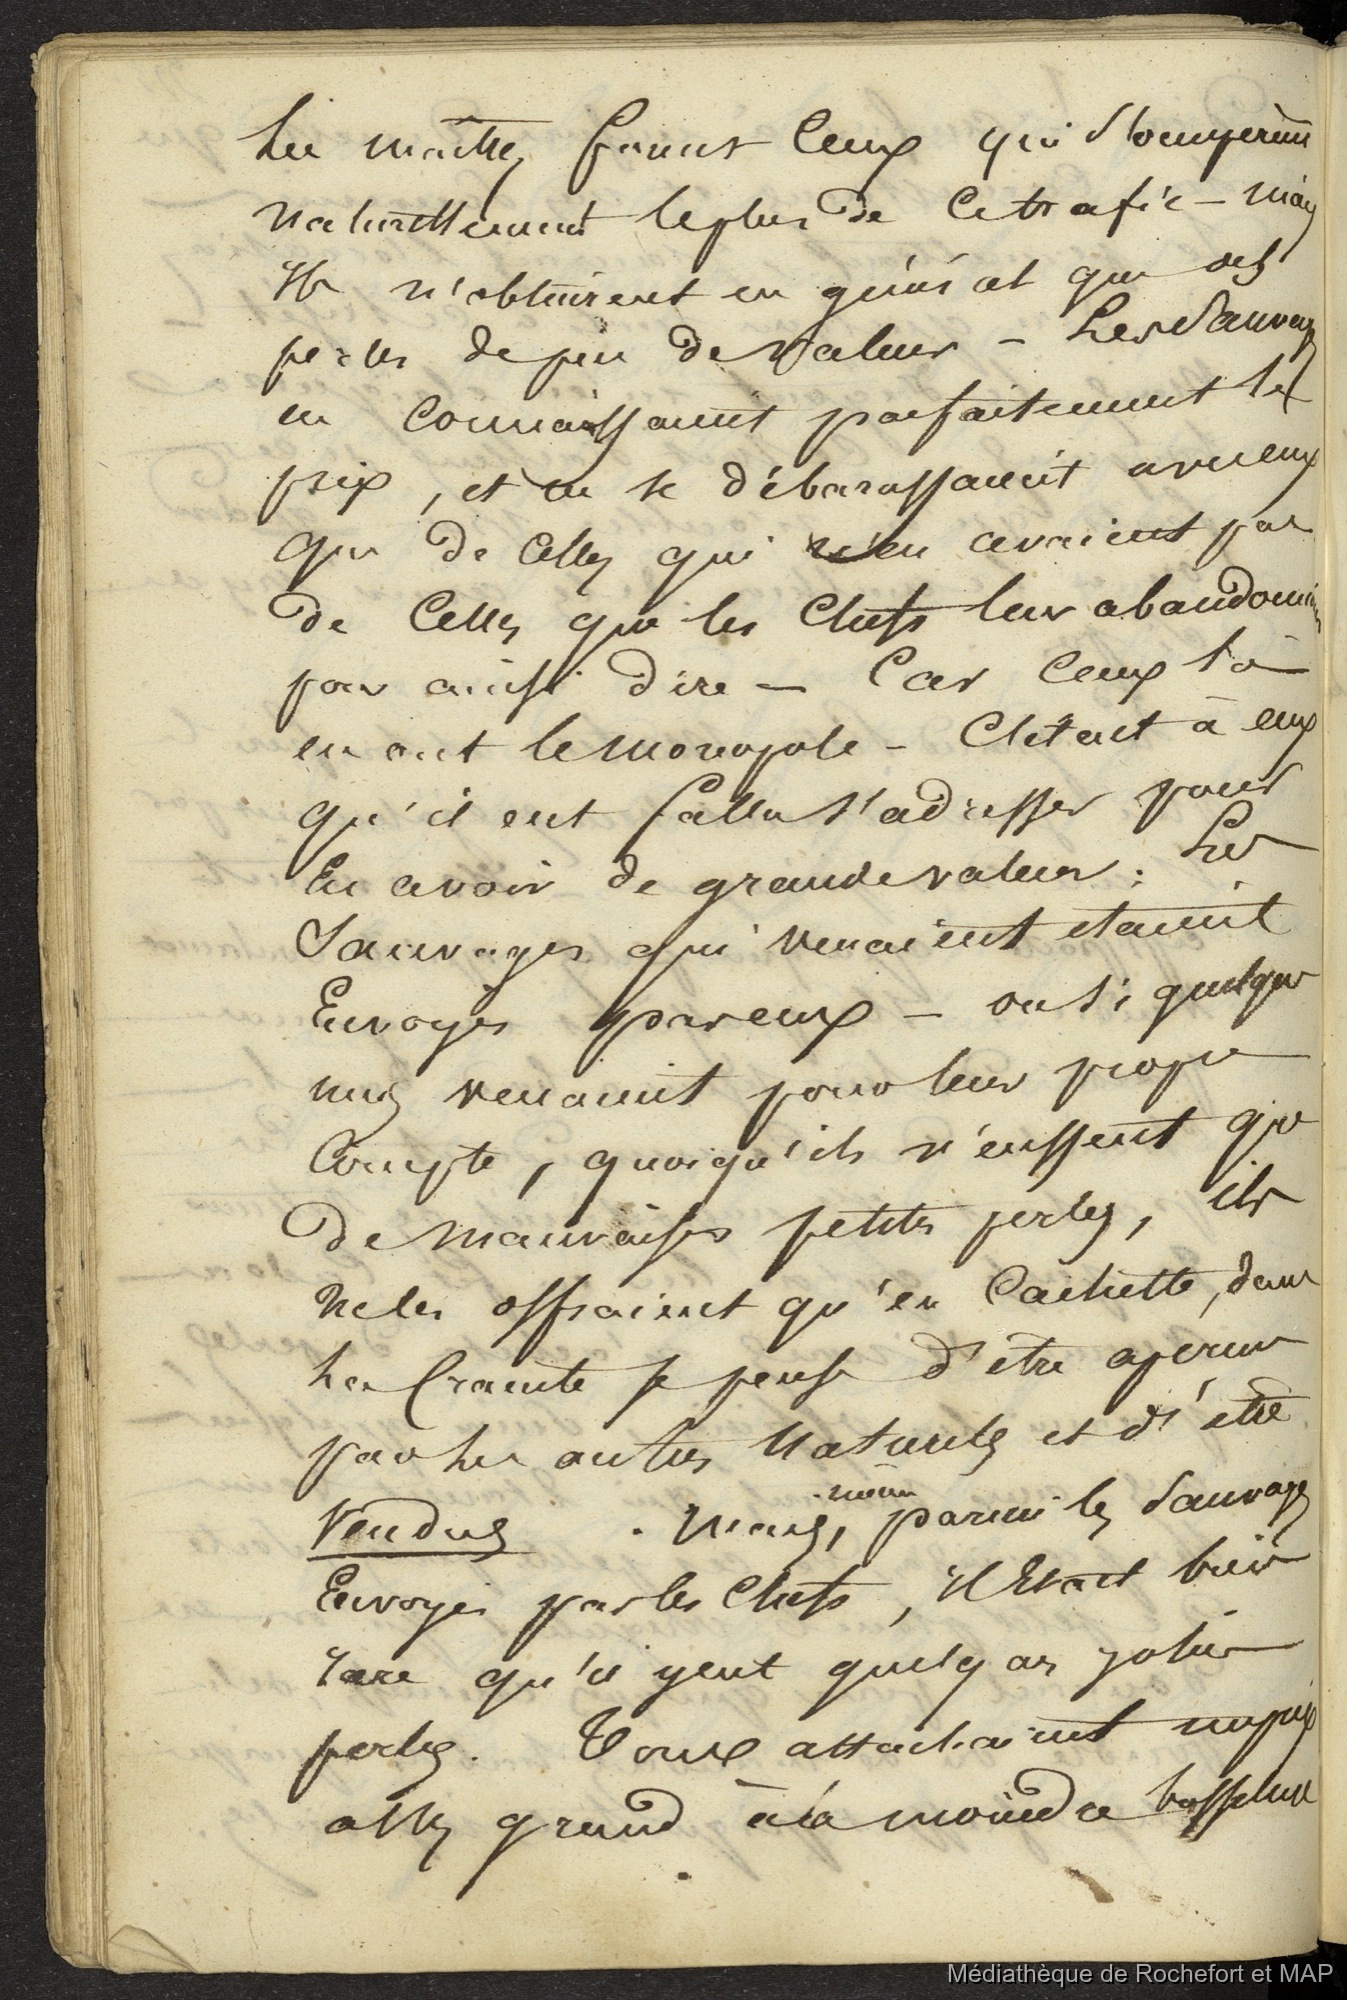 Les maîtres furent Ceux qui s'occupèrent
naturellement le plus de Ce trafic - mais
Ils n'obtinrent en général que des
perles de peu de valeur - Les Sauvages
en Connaissaient parfaitement le
prix, et ne se débarassaient avec eux
que de Celles qui n'en avaient pas
de Celles que les Chefs leur abandonnaient
pour ainsi dire - Car Ceux là
en ont le monopole - C'était à eux
qu'il eut fallu s'adresser pour
En avoir de grande valeur : Les
Sauvages qui venaient étaient
Envoyés par eux - ou si quelques
uns venaient pour leur propre
Compte, quoiqu'ils n'eussent que
de mauvaises petites perles, ils
ne les offraient qu'en Cachette, dans
la Crainte je pense d'être aperçus
par les autres Naturels et d'être
Vendus . Mais, même parmi les Sauvages
Envoyés par les Chefs, il Etait bien
rare qu'il y eut quelques jolies
perles. Tous attachaient un prix
assez grand à la moindre
Médiathèque de Rochefort et MAP